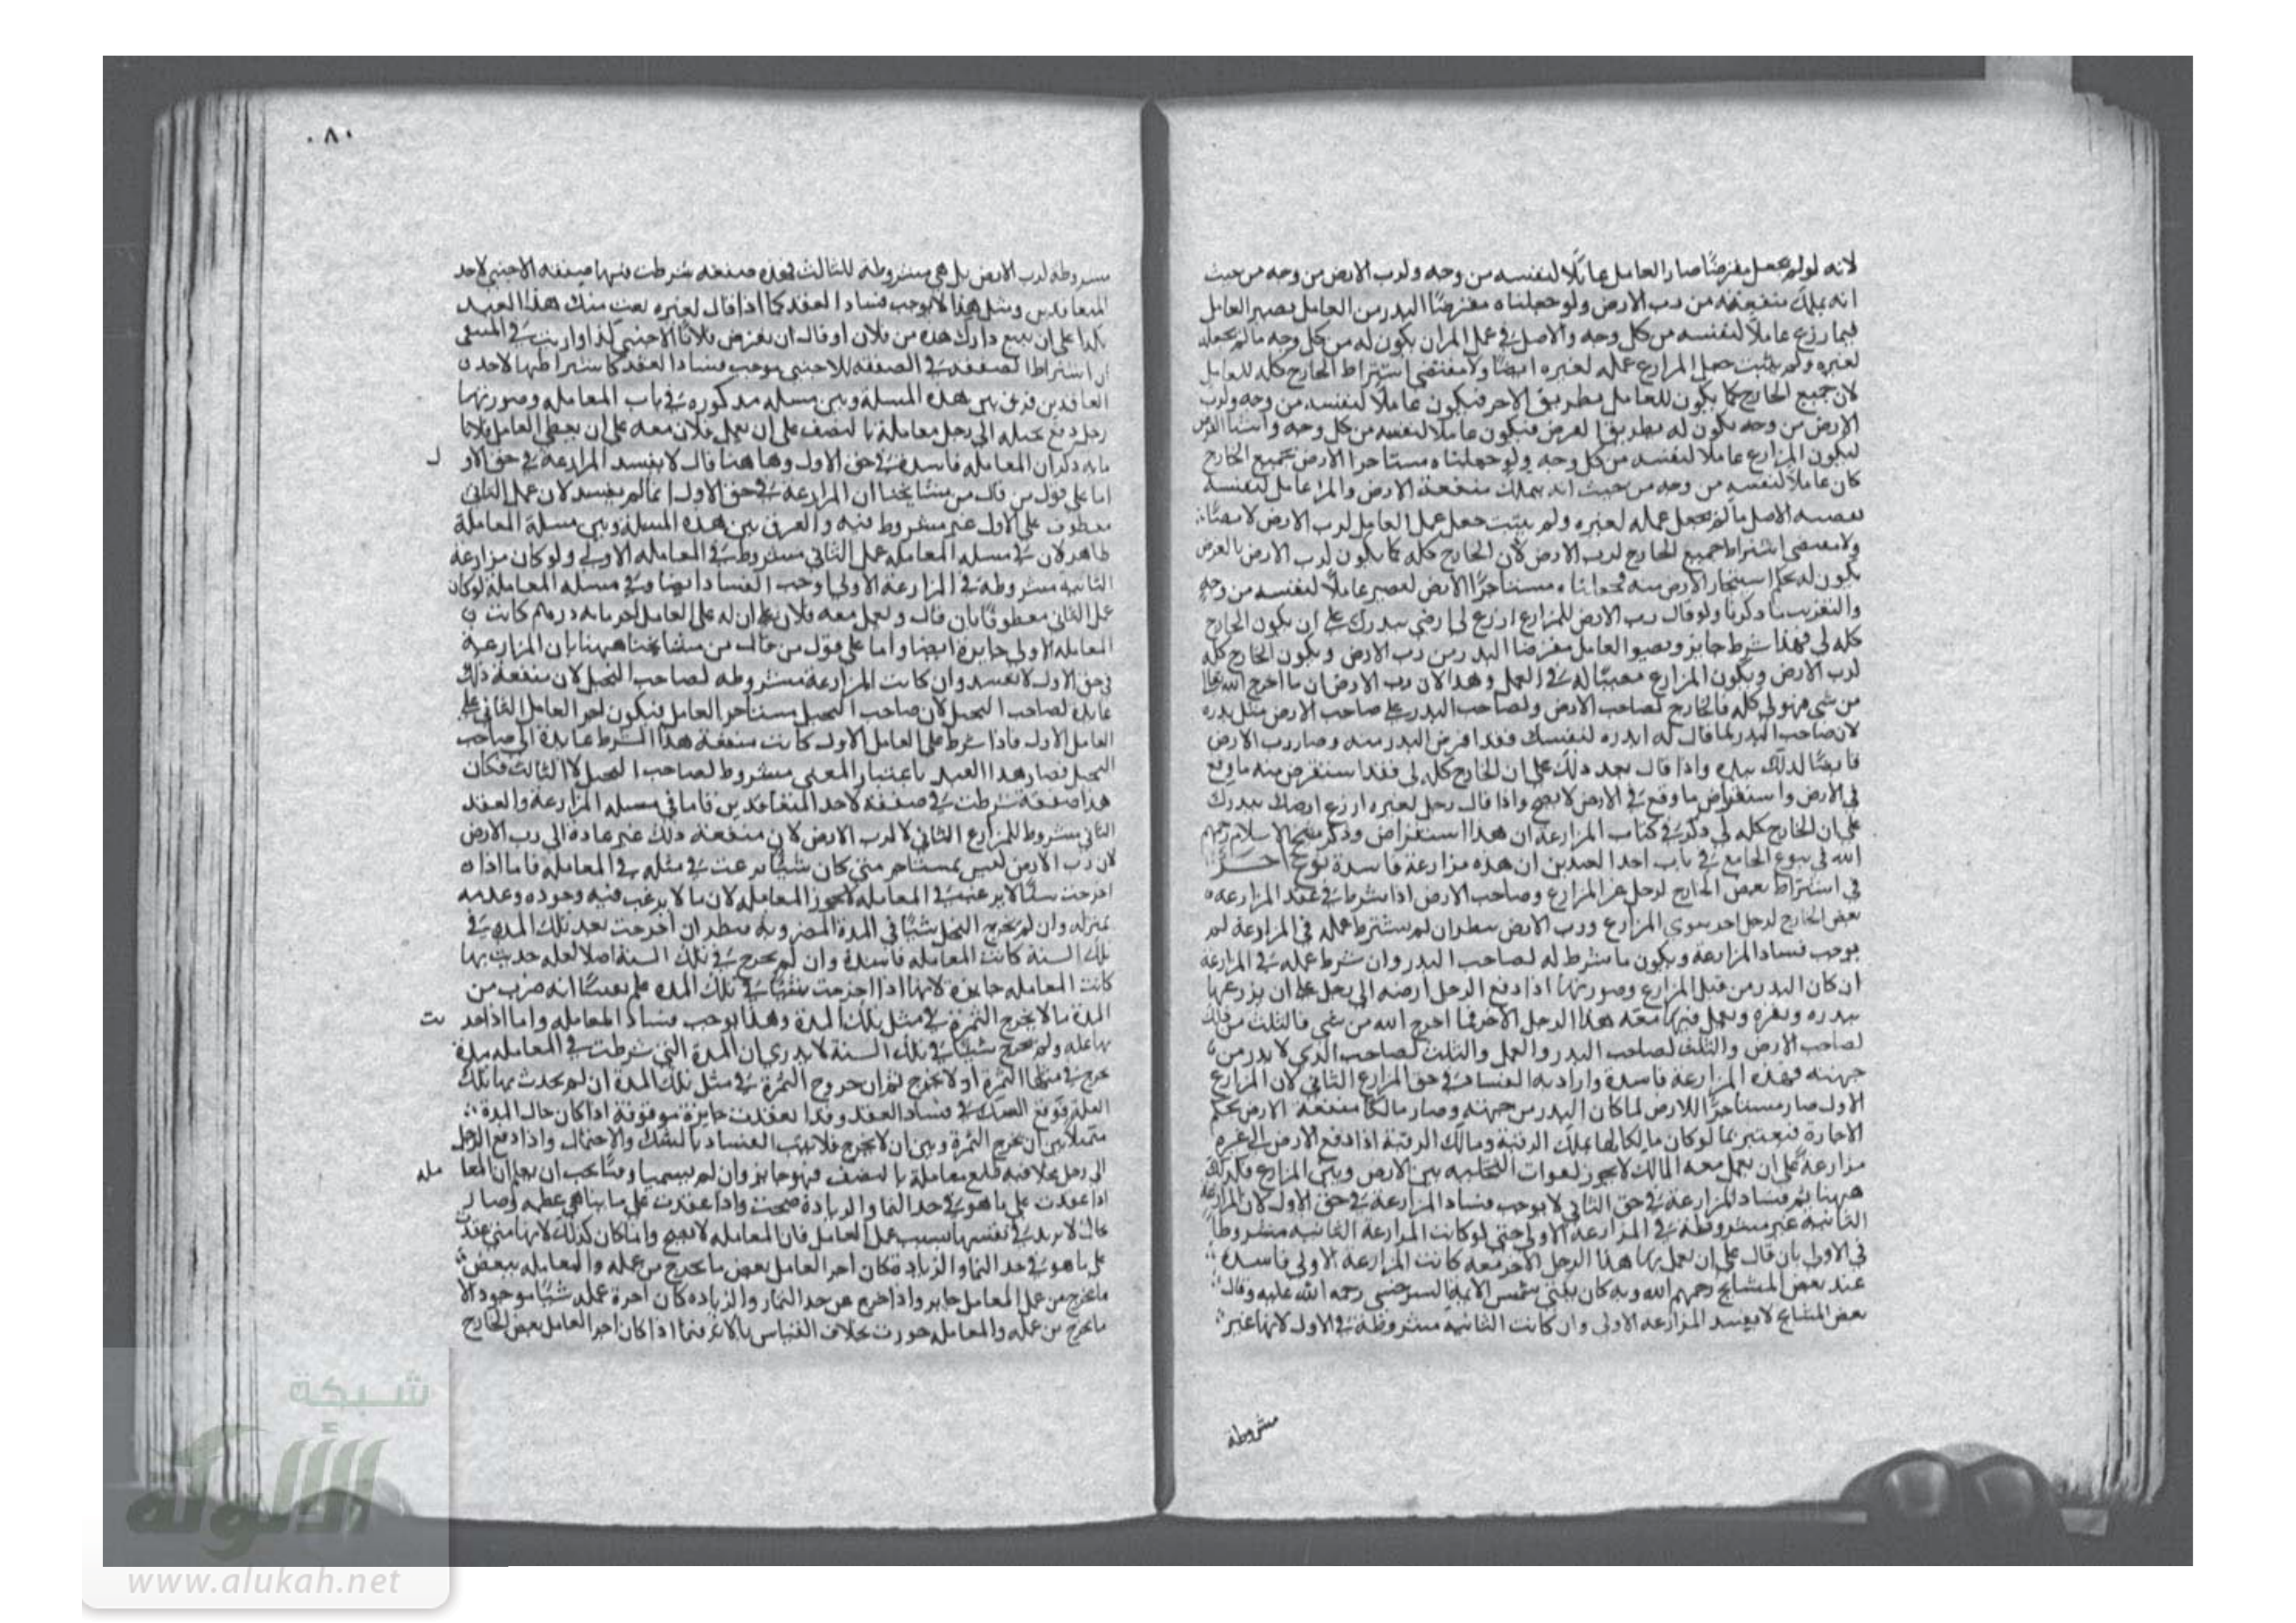 لانه لو لم يجعل مقرضًا صار العامل عاملًا لنفسه من وجه ولرب الارض من وجه من حيث
انه يملك منفعته من رب الارض ولو جعلناه مقرضًا البدر من العامل يصير العامل
فيما زرع عاملًا لنفسه من كل وجه والاصل في عمل المران يكون له من كل وجه ما لم يجعله
لغيره ولم يثبت جعل المزارع عمله لغيره ايضًا ولا مقتضى اشتراط الخارج كله للعامل
لان جميع الخارج كما يكون للعامل بطريق الاجر فيكون عاملًا لنفسه من وجه ولرب
الارض من وجه يكون له بطريق القرض فيكون عاملا لنفسه من كل وجه
ليكون المزارع عاملا لنفسه من كل وجه ولو جعلناه مستاجرا الارض بجميع الخارج
كان عاملًا لنفسه من وجه من حيث انه يملك منفعة الارض والمرا عامل لنفسه
الاصل ما لم يجعل عمله لغيره ولم يثبت جعل عمل العامل لرب الارض
اشتراط جميع الخارج لرب الارض لان الخارج كله كما يكون لرب الارض بالعرض
يكون له بحكم استيجار الارض منه مستاجرًا الارض عاملًا لنفسه من وجه
والتقريب ما ذكرنا ولو قال رب الارض للمزارع ازرع لي ارضي ببدرك على ان يكون الخارج
كله لي فهذا شرط جايز ويصير العامل مقرضا البدر من رب الارض ويكون الخارج كله
لرب الارض ويكون المزارع معينًا له في العمل وهذا لان رب الارض ما اخرج الله
من شي فهو لي كله فالخارج لصاحب الارض ولصاحب البدر على صاحب الارض مثل بدره
لان صاحب البدر لما قال له ابدره لنفسك فقد اقرض البدر منه وصار رب الارض
قابضًا لذلك بيده واذا قال بعد ذلك على ان الخارج كله لي فقد استقرض منه ما وقع
في الارض واستقراض ما وقع في الارض لا يصح واذا قال رجل لغيره ازرع ارضك ببدرك
على ان الخارج كله لي ذكر في كتاب المزارعة ان هذا استقراض وذكر شيخ الاسلام رحمهم
الله في بيوع الجامع في باب احد العبدين ان هذه مزارعة فاسدة نوع اخر
في اشتراط بعض الخارج لرجل غير المزارع وصاحب الارض اذا شرطا في عقد المزارعة
بعض الخارج لرجل اخر سوى المزارع ورب الارض ينظر ان لم يشترط عمله في المزارعة لم
يوجب فساد المزارعة ويكون ما شرط له لصاحب البدر وان شرط عمله في المزارعة
ان كان البدر من قبل المزارع وصورتها اذا دفع الرجل ارضه الى رجل على ان يزرعها
ببدره وبقره ويعمل فيها معه هذا الرجل الاخر فما اخرج الله من شي فالثلث من ذلك
لصاحب الارض والثلث لصاحب البدر والعمل والثلث لصاحب الذي لا بدر من
جهته فهذه المزارعة فاسدة واراد به الفساد في حق المزارع الثاني لان المزارع
الاول صار مستاجرًا للارض لما كان البدر من جهته وصار مالكًا منفعة الارض بحكم
الاجارة فيعتبر بما لو كان مالكا لها بملك الرقبة ومالك الرقبة اذا دفع الارض الى غيره
مزارعة على ان يعمل معه المالك لا يجوز لفوات التخلية بين الارض وبين المزارع فكذلك
ههنا ثم فساد المزارعة في حق الثاني لا يوجب فساد المزارعة في حق الاول لان المزارعة
الثانية غير مشروطة في المزارعة الاولى حتى لو كانت المزارعة الثانية مشروطا
في الاولى بان قال على ان يعمل بها هذا الرجل الاخر معه كانت المزارعة الاولى فاسدة
عند بعض المشايخ رحمهم الله وبه كان يفتي شمس الايمة السرخسي رحمه الله عليه وقال
بعض المشايخ لا يفسد المزارعة الاولى وان كانت الثانية مشروطة في الاول لانها غير
مشروطة
٨٠
مشروطة لرب الارض بل هي مشروطة للثالث فهذه صفقة شرطت فيها صفقة الاجنبي لاحد
المتعاقدين ومثل هذا لا يوجب فساد العقد كما اذا قال لغيره بعت منك هذا العبد
بكذا على ان تبيع دارك هذه من فلان او قال ان تقرض فلانًا الاجنبي كذا في المنتقى
ان اشتراط الصفقة في الصفقة للاجنبي يوجب فساد العقد كاشتراطها لاحد
العاقدين فرق بين هذه المسلة وبين مسلة مذكورة في باب المعاملة وصورتها
رجل دفع نخيله الى رجل معاملة بالنصف على ان يعمل فلان معه على ان يعطي العامل فلانا
ماية ذكر ان المعاملة فاسدة في حق الاول وها هنا قال لا يفسد المزارعة في حق الاول
اما على قول من قال من مشايخنا ان المزارعة في حق الاول انما لم يفسد لان عمل الثاني
معطوف على الاول غير مشروط فيه والفرق بين هذه المسلة وبين مسلة المعاملة
ظاهر لان في مسلة المعاملة عمل الثاني مشروط في المعاملة الاولى ولو كان مزارعة
الثانية مشروطة في المزارعة الاولى اوجب الفساد ايضا وفي مسلة المعاملة لو كان
عمل الثاني معطوفًا بان قال ويعمل معه فلان على ان له على العامل اجر ماية درهم كانت
المعاملة الاولى جايزة ايضا واما على قول من قال من مشايخنا ههنا بان المزارعة
في حق الاول لا تفسد وان كانت المزارعة مشروطة لصاحب النخيل لان منفعة ذلك
عايدة لصاحب النخيل لان صاحب النخيل مستاجر العامل فيكون اجر العامل الثاني على
العامل الاول فاذا شرط على العامل الاول كانت منفعة هذا الشرط عايدة الى صاحب
النخيل فصار هذا العقد باعتبار المعنى مشروط لصاحب النخيل لا الثالث فكان
هذا صفقة شرطت في صفقة لاحد المتعاقدين فاما في مسلة المزارعة والعقد
الثاني مشروط للمزارع الثاني لا لرب الارض لان منفعة ذلك غير عادة الى رب الارض
لان رب الارض ليس بمستاجر متى كان شيئًا يرغب في مثله في المعاملة فاما اذا
اخرجت شيئًا لا يرغب في المعاملة لا تجوز المعاملة لان ما لا يرغب فيه وجوده وعدمه
بمنزلة وان لم يخرج النخل شيئًا في المدة المضروبة ينظر ان اخرجت بعد تلك المدة في
تلك السنة كانت المعاملة فاسدة وان لم يخرج في تلك السنة اصلا لعلة حدثت بها
كانت المعاملة جايزة لانها اذا اخرجت في تلك المدة علم يقينًا انه ضرب من
المدة ما لا يخرج الثمرة في مثل تلك المدة وهذا يوجب فساد المعاملة واما اذا حدثت
بها علة ولم يخرج شيئًا في تلك السنة لا يدري ان المدة التي شرطت في المعاملة مدة
يخرج في مثلها الثمرة او لا يخرج لتوهم ان خروج الثمرة في مثل تلك المدة ان لم يحدث بها تلك
العلة فوقع الشك في فساد العقد وقد انعقدت جايزة موقوفة اذا كان حال المدة
بين ان يخرج الثمرة وبين ان لا يخرج فلا يثبت الفساد بالشك والاحتمال واذا دفع الرجل
الى رجل نخلا فيه طلع معاملة بالنصف فهو جايز وان لم يسميا وقتًا يجب ان يعلم ان المعاملة
اذا عقدت على ما هو في حد النما والزيادة صحت واذا عقدت على ما تناهى عظمه وصار
بحال لا يزيد في نفسه بسبب عمل العامل فان المعاملة لا تصح وانما كان كذلك لانها متى عقدت
على ما هو في حد النما والزيادة كان اجر العامل بعض ما يخرج من عمله والمعاملة ببعض
ما يخرج من عمل العامل جايز واذا خرج عن حد النما والزيادة كان اجرة عمله شيئًا موجودًا لا
ما يخرج من عمله والمعاملة جوزت بخلاف القياس بالاثر فيما اذا كان اجر العامل بعض الخارج
شبكة
الألوكة
www.alukah.net